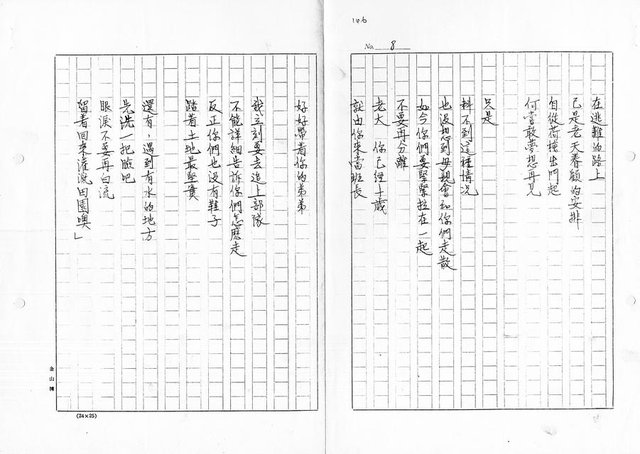 106
No. 8
在逃難的路上
已是老天眷顧的安排
自從荷槍出門起
何嘗敢夢想再見
只是
料不到這種情況
也沒想到母親會和你們走散
如今你們要緊緊拉在一起
不要再分離
老大 你已經十歲
就由你來當班長
好好帶著你的弟弟
我立刻要去追上部隊
不能詳細告訴你們怎麼走
反正你們也沒有鞋子
踏著土地最堅實
還有，遇到有水的地方
先洗一把臉吧
眼淚不要再白流
留著回來灌溉田園噢」
金山牌
(24×25)